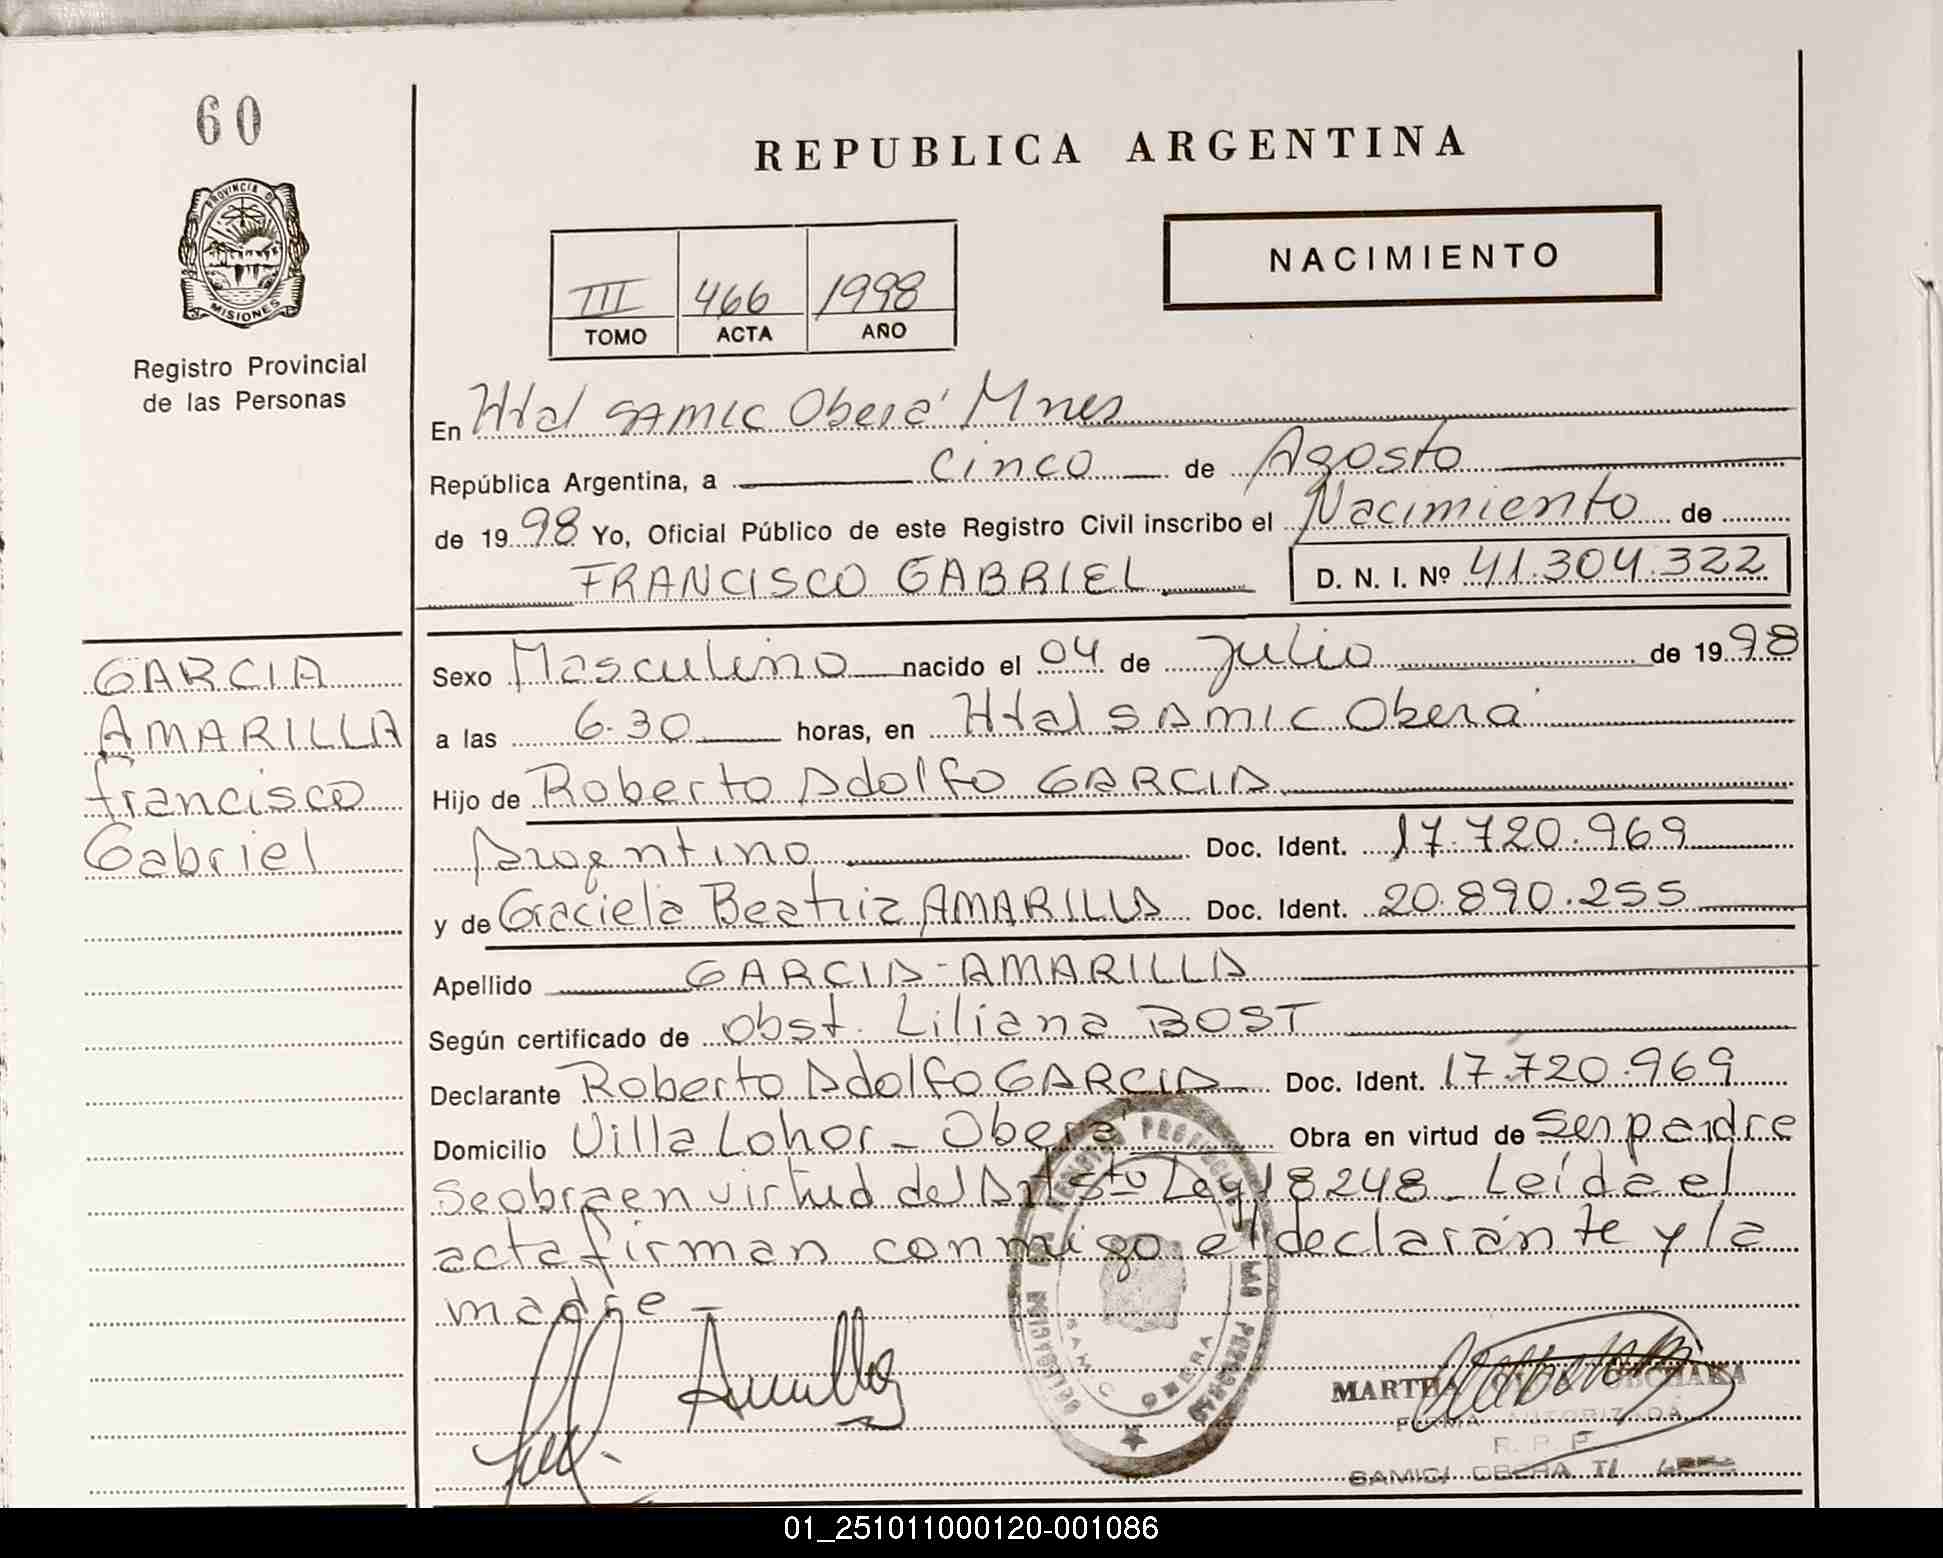 60
PROVINCIA DE
MISIONES
Registro Provincial
de las Personas
REPUBLICA ARGENTINA
III 466 1998
TOMO ACTA AÑO
NACIMIENTO
En Htal SAMIC Oberá Mnes
República Argentina, a cinco de Agosto
de 1998 Yo, Oficial Público de este Registro Civil inscribo el Nacimiento de
FRANCISCO GABRIEL D. N. I. Nº 41.304.322
GARCIA
AMARILLA
francisco
Gabriel
Sexo Masculino nacido el 04 de Julio de 1998
a las 6.30 horas, en Htal SAMIC Oberá
Hijo de Roberto Adolfo GARCIA
Argentino Doc. Ident. 17.720.969
y de Graciela Beatriz AMARILLA Doc. Ident. 20.890.255
Apellido GARCIA-AMARILLA
Según certificado de obst. Liliana BOST
Declarante Roberto Adolfo GARCIA Doc. Ident. 17.720.969
Domicilio Villa Lohor - Oberá Obra en virtud de ser padre
se obra en virtud del Art 5to Ley 18248 - Leída el
acta firman conmigo el declarante y la
madre -
SAMIC OBERA
MARTHA
FIRMA AUTORIZADA
R. P. P.
SAMIC/ OBERA
01_251011000120-001086